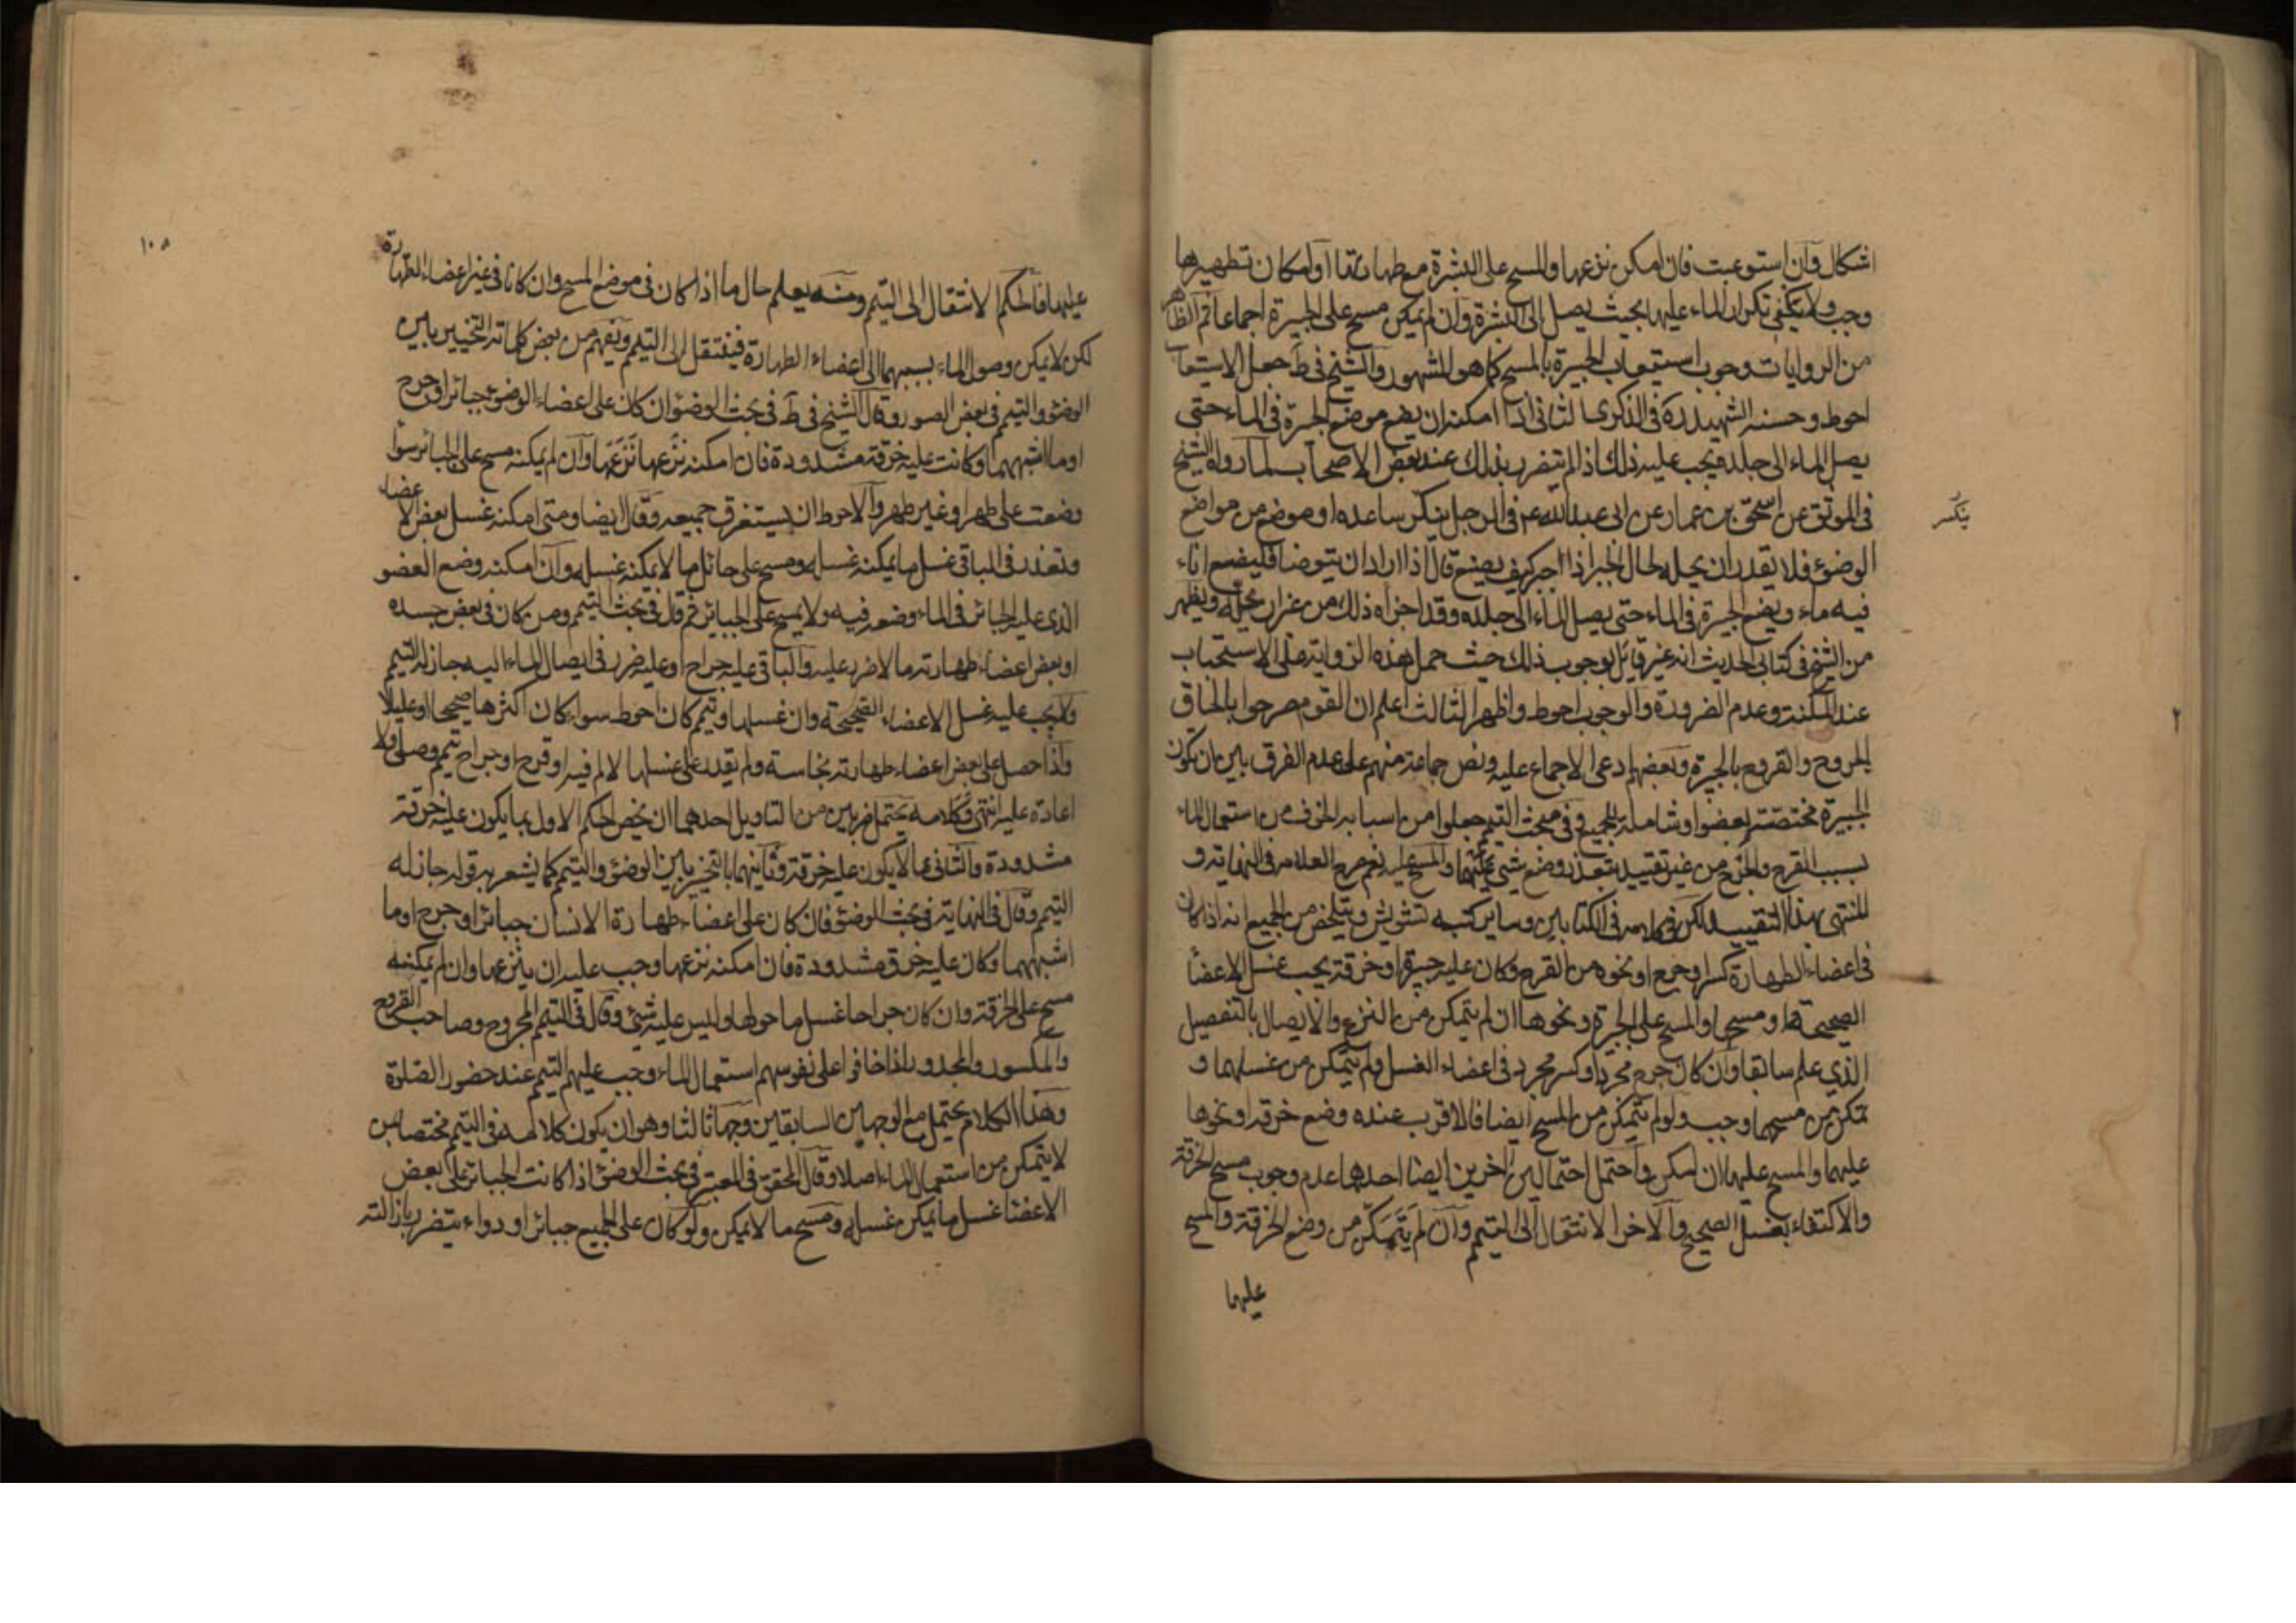 اشكال وان استوعبت فان امكن نزعها والمسح على البشرة مع طهارتها او امكان تطهيرها
وجب ولا يكفي تكرار الماء عليها بحيث يصل الى البشرة وان لم يمكن مسح على الجبيرة اجماعا ثم الظاهر
من الروايات وجوب استيعاب الجبيرة بالمسح كما هو المشهور والشيخ في ط جعل الاستيعاب
احوط وحسنه الشهيد ره في الذكرى الثاني اذا امكنه ان يضع موضع الجبيرة في الماء حتى
يصل الماء الى جلده يجب عليه ذلك اذا لم يتضرر بذلك عند بعض الاصحاب لما رواه الشيخ
في الموثق عن اسحق بن عمار عن ابي عبدالله ع في الرجل ينكسر ساعده او موضع من مواضع
ينكسر
الوضوء فلا يقدر ان يحله لحال الجبر اذا اجبر كيف يصنع قال اذا اراد ان يتوضا فليضع اناء
فيه ماء ويضع الجبيرة في الماء حتى يصل الماء الى جلده وقد اجزاه ذلك من غير ان يحله ويظهر
من الشيخ في كتابي الحديث انه غير قائل بوجوب ذلك حيث حمل هذه الرواية على الاستحباب
عند المكنة وعدم الضرورة والوجوب احوط واظهر الثالث اعلم ان القوم صرحوا بالحاق
الجروح والقروح بالجبيرة وبعضهم ادعى الاجماع عليه ونص جماعة منهم على عدم الفرق بين ان تكون
الجبيرة مختصة بعضو او شاملة للجميع وفي مبحث التيمم جعلوا من اسبابه الخوف من استعمال الماء
بسبب القرح والجرح من غير تقييد بتعذر وضع شيء عليهما والمسح عليه نعم صرح العلامة في النهاية و
المنتهى بهذا التقييد لكن في كلامه في الكتابين وساير كتبه تشويش ويتلخص من الجميع انه اذا كان
في اعضاء الطهارة كسر او جرح او نحوه من القرح وكان عليه جبيرة او خرقة يجب غسل الاعضاء
الصحيحة او مسحها والمسح على الجبيرة ونحوها ان لم يتمكن من النزع والايصال بالتفصيل
الذي علم سابقا وان كان جرح مجرد او كسر مجرد في اعضاء الغسل ولم يتمكن من غسلهما و
تمكن من مسحهما وجب ولو لم يتمكن من المسح ايضا فالاقرب عنده وضع خرقة او نحوها
عليهما والمسح عليها ان امكن واحتمل احتمالين اخرين ايضا احدهما عدم وجوب مسح الخرقة
والاكتفاء بغسل الصحيح والاخر الانتقال الى التيمم وان لم يتمكن من وضع الخرقة والمسح
عليهما
١٠٨
عليهما فالحكم الانتقال الى التيمم ومنه يعلم حال ما اذا كان في موضع المسح وان كانا في غير اعضاء الطهارة
لكن لا يمكن وصول الماء بسببهما الى اعضاء الطهارة فينتقل الى التيمم ويفهم من بعض كلماته التخيير بين
الوضوء والتيمم في بعض الصور وقال الشيخ في ط في بحث الوضوء ان كان على اعضاء الوضوء جبائر او جرح
او ما اشبههما وكانت عليه خرقة مشدودة فان امكنه نزعها نزعها وان لم يمكنه مسح على الجبائر سواء
وضعت على طهر او غير طهر والاحوط ان يستغرق جميعه وقال ايضا ومتى امكنه غسل بعض الاعضاء
وتعذر في الباقي غسل ما يمكنه غسله ومسح على حائل ما لا يمكنه غسله وان امكنه وضع العضو
الذي عليه الجبائر في الماء وضعه فيه ولا يمسح على الجبائر ثم قال في بحث التيمم ومن كان في بعض جسده
او بعض اعضاء طهارته ما لا ضرر عليه والباقي عليه جراح او عليه ضرر في ايصال الماء اليه جاز له التيمم
ولا يجب عليه غسل الاعضاء الصحيحة وان غسلها وتيمم كان احوط سواء كان اكثرها صحيحا او عليلا
واذا حصل على بعض اعضاء طهارته نجاسة ولم يقدر على غسلها لالم فيه او قرح او جراح تيمم وصلى ولا
اعادة عليه انتهى وكلامه يحتمل ضربين من التاويل احدهما ان يخص الحكم الاول بما يكون عليه خرقة
مشدودة والثاني بما لا يكون عليه خرقة وثانيهما بالتخيير بين الوضوء والتيمم كما يشعر به قوله جاز له
التيمم وقال في النهاية في بحث الوضوء فان كان على اعضاء طهارة الانسان جبائر او جرح او ما
اشبههما وكان عليه خرق مشدودة فان امكنه نزعها وجب عليه ان ينزعها وان لم يمكنه
مسح على الخرقة وان كان جراحا غسل ما حولها وليس عليه شيء وقال في التيمم المجروح وصاحب القروح
والمكسور والمجدور اذا خافوا على نفوسهم استعمال الماء وجب عليهم التيمم عند حضور الصلوة
وهذا الكلام يحتمل مع الوجهين السابقين وجها ثالثا وهو ان يكون كلامه في التيمم مختصا بمن
لا يتمكن من استعمال الماء اصلا وقال المحقق في المعتبر في بحث الوضوء اذا كانت الجبائر على بعض
الاعضاء غسل ما يمكن غسله ومسح ما لا يمكن ولو كان على الجميع جبائر او دواء يتضرر بازالته